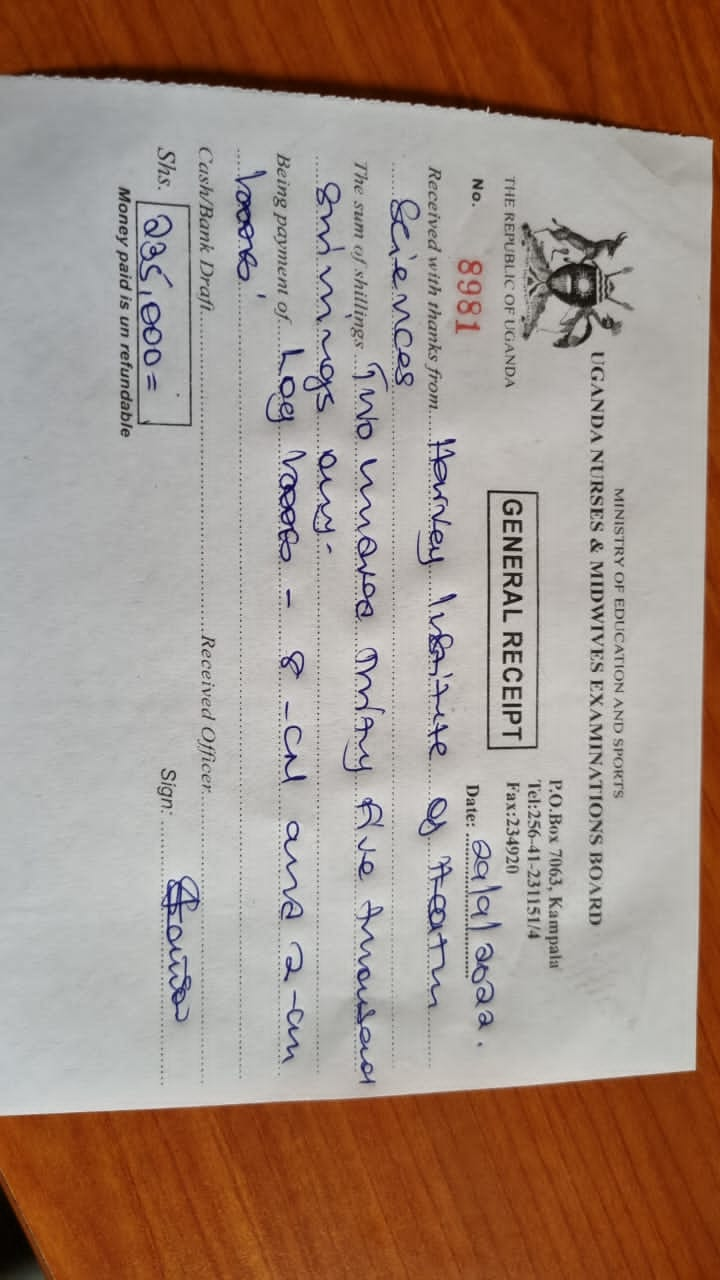 MINISTRY OF EDUCATION AND SPORTS
UGANDA NURSES & MIDWIVES EXAMINATIONS BOARD
THE REPUBLIC OF UGANDA
P.O.Box 7063, Kampala
Tel:256-41-231151/4
Fax:234920
GENERAL RECEIPT
No. 8981
Date: 29/9/2022.
Received with thanks from Harvey Institute of Health
Sciences
The sum of shillings Two hundred thirty five thousand
shillings only.
Being payment of Log books - 8 - CN and 2 - CM
books
Cash/Bank Draft Received Officer
Shs. 235,000=
Sign:
Money paid is un refundable